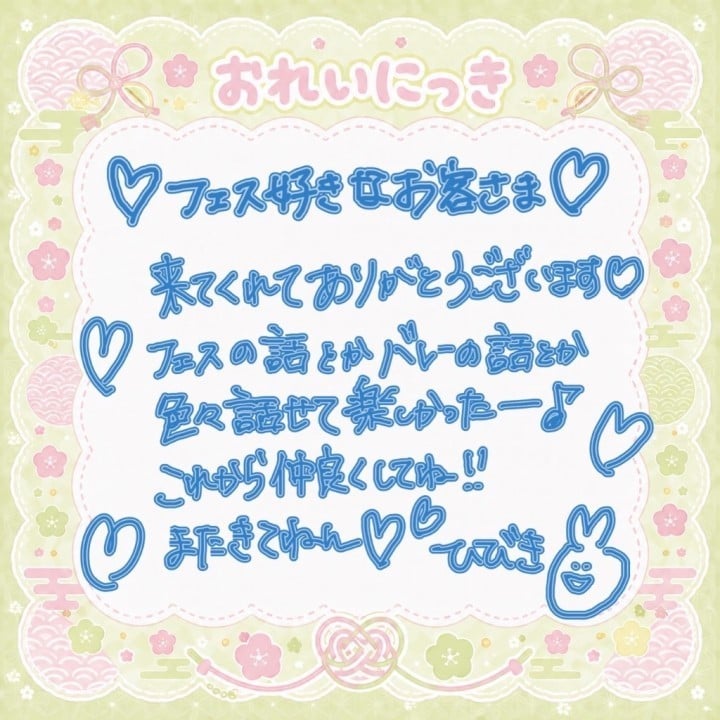 おれいにっき
♡フェス好きなお客さま♡
来てくれてありがとうございます♡
フェスの話とかバレーの話とか
色々話せて楽しかったー♪
これから仲良くしてね!!
またきてねん♡♡ ひびき